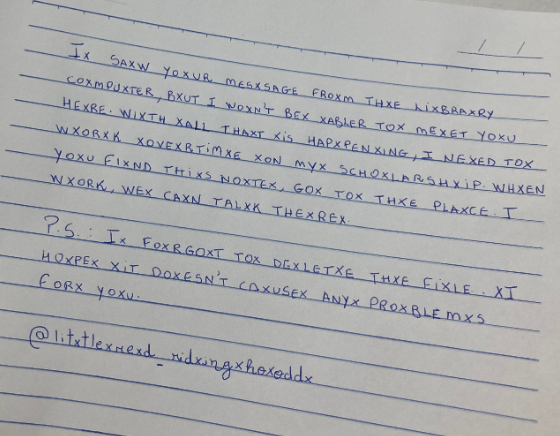 / /
Ix SAXW YOXUR MESXSAGE FROXM THXE LIXBRAXRY
COXMPUXTER, BXUT I WOXN'T BEX XABLER TOX MEXET YOXU
HEXRE. WIXTH XALL THAXT XIS HAPXPENXING, I NEXED TOX
WXORXK XOVEXRTIMXE XON MYX SCHOXLARSHXIP. WHXEN
YOXU FIXND THIXS NOXTEX, GOX TOX THXE PLAXCE I
WXORK, WEX CAXN TALXK THEXREX.
P.S.: Ix FOXRGOXT TOX DEXLETXE THXE FIXLE. XI
HOXPEX XIT DOXESN'T CAXUSEX ANYX PROXBLEMXS
FORX YOXU.